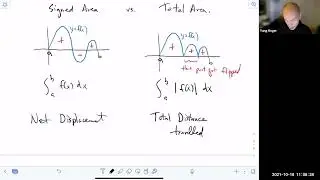 Signed Area vs. Total Area.
y=f(x) y=f(x)
+ - + + + +
a b a b
this part got flipped
∫_a^b f(x) dx ∫_a^b |f(x)| dx
Net Displacement Total Distance
travelled
2021-10-18